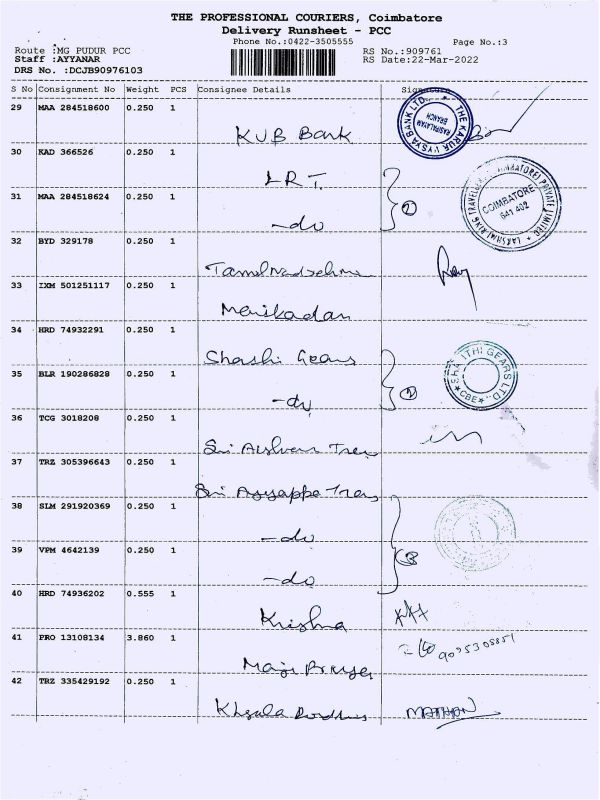 THE PROFESSIONAL COURIERS, Coimbatore
Delivery Runsheet - PCC
Phone No.:0422-3505555 Page No.:3
Route :MG PUDUR PCC RS No.:909761
Staff :AYYANAR RS Date:22-Mar-2022
DRS No. :DCJB90976103
S No Consignment No Weight PCS Consignee Details Signature
29 MAA 284518600 0.250 1
KVB Bank
THE KARUR VYSYA BANK LTD.
BRANCH
30 KAD 366526 0.250 1
LRT
31 MAA 284518624 0.250 1
-do
2
COIMBATORE
641 402
32 BYD 329178 0.250 1
33 IXM 501251117 0.250 1
Manikadan
34 HRD 74932291 0.250 1
Shashi Gears
35 BLR 190286828 0.250 1
-do
2
SHANTHI GEARS LTD.
CBE
36 TCG 3018208 0.250 1
Sri
37 TRZ 305396643 0.250 1
Sri Ayyappa Trens
38 SLM 291920369 0.250 1
-do
39 VPM 4642139 0.250 1
-do
3
40 HRD 74936202 0.555 1
Krishna
41 PRO 13108134 3.860 1
42 TRZ 335429192 0.250 1
MATHAN